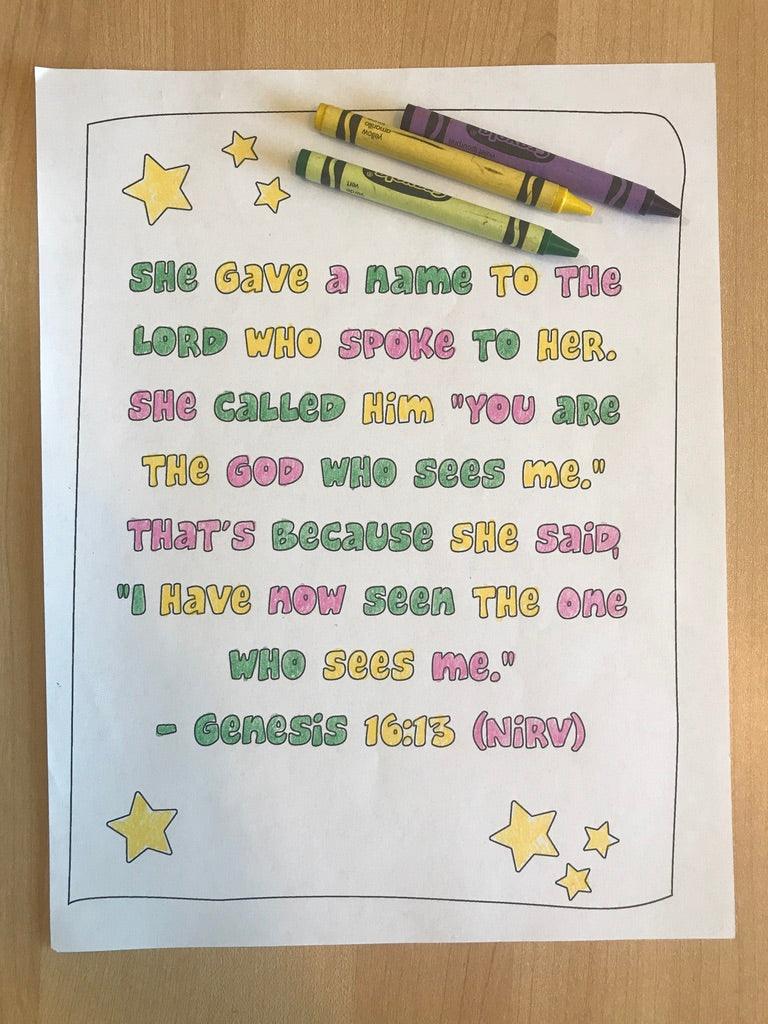 yellow
amarillo
Crayola
verde
vert
She gave a name to the
Lord who spoke to her.
She called Him "You are
the God who sees me."
That's because she said,
"I have now seen the One
who sees me."
- Genesis 16:13 (NIRV)